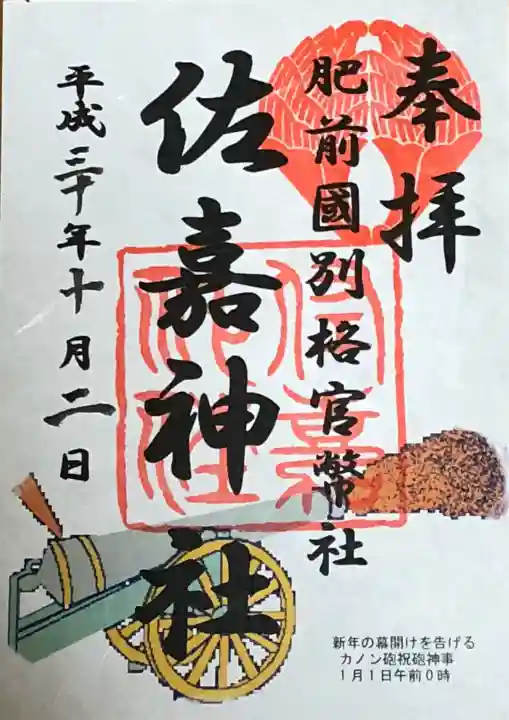 奉拝
肥前國別格官幣社
佐嘉神社
平成三十年十月二日
佐嘉神社
新年の幕開けを告げる
カノン砲祝砲神事
1月1日午前0時